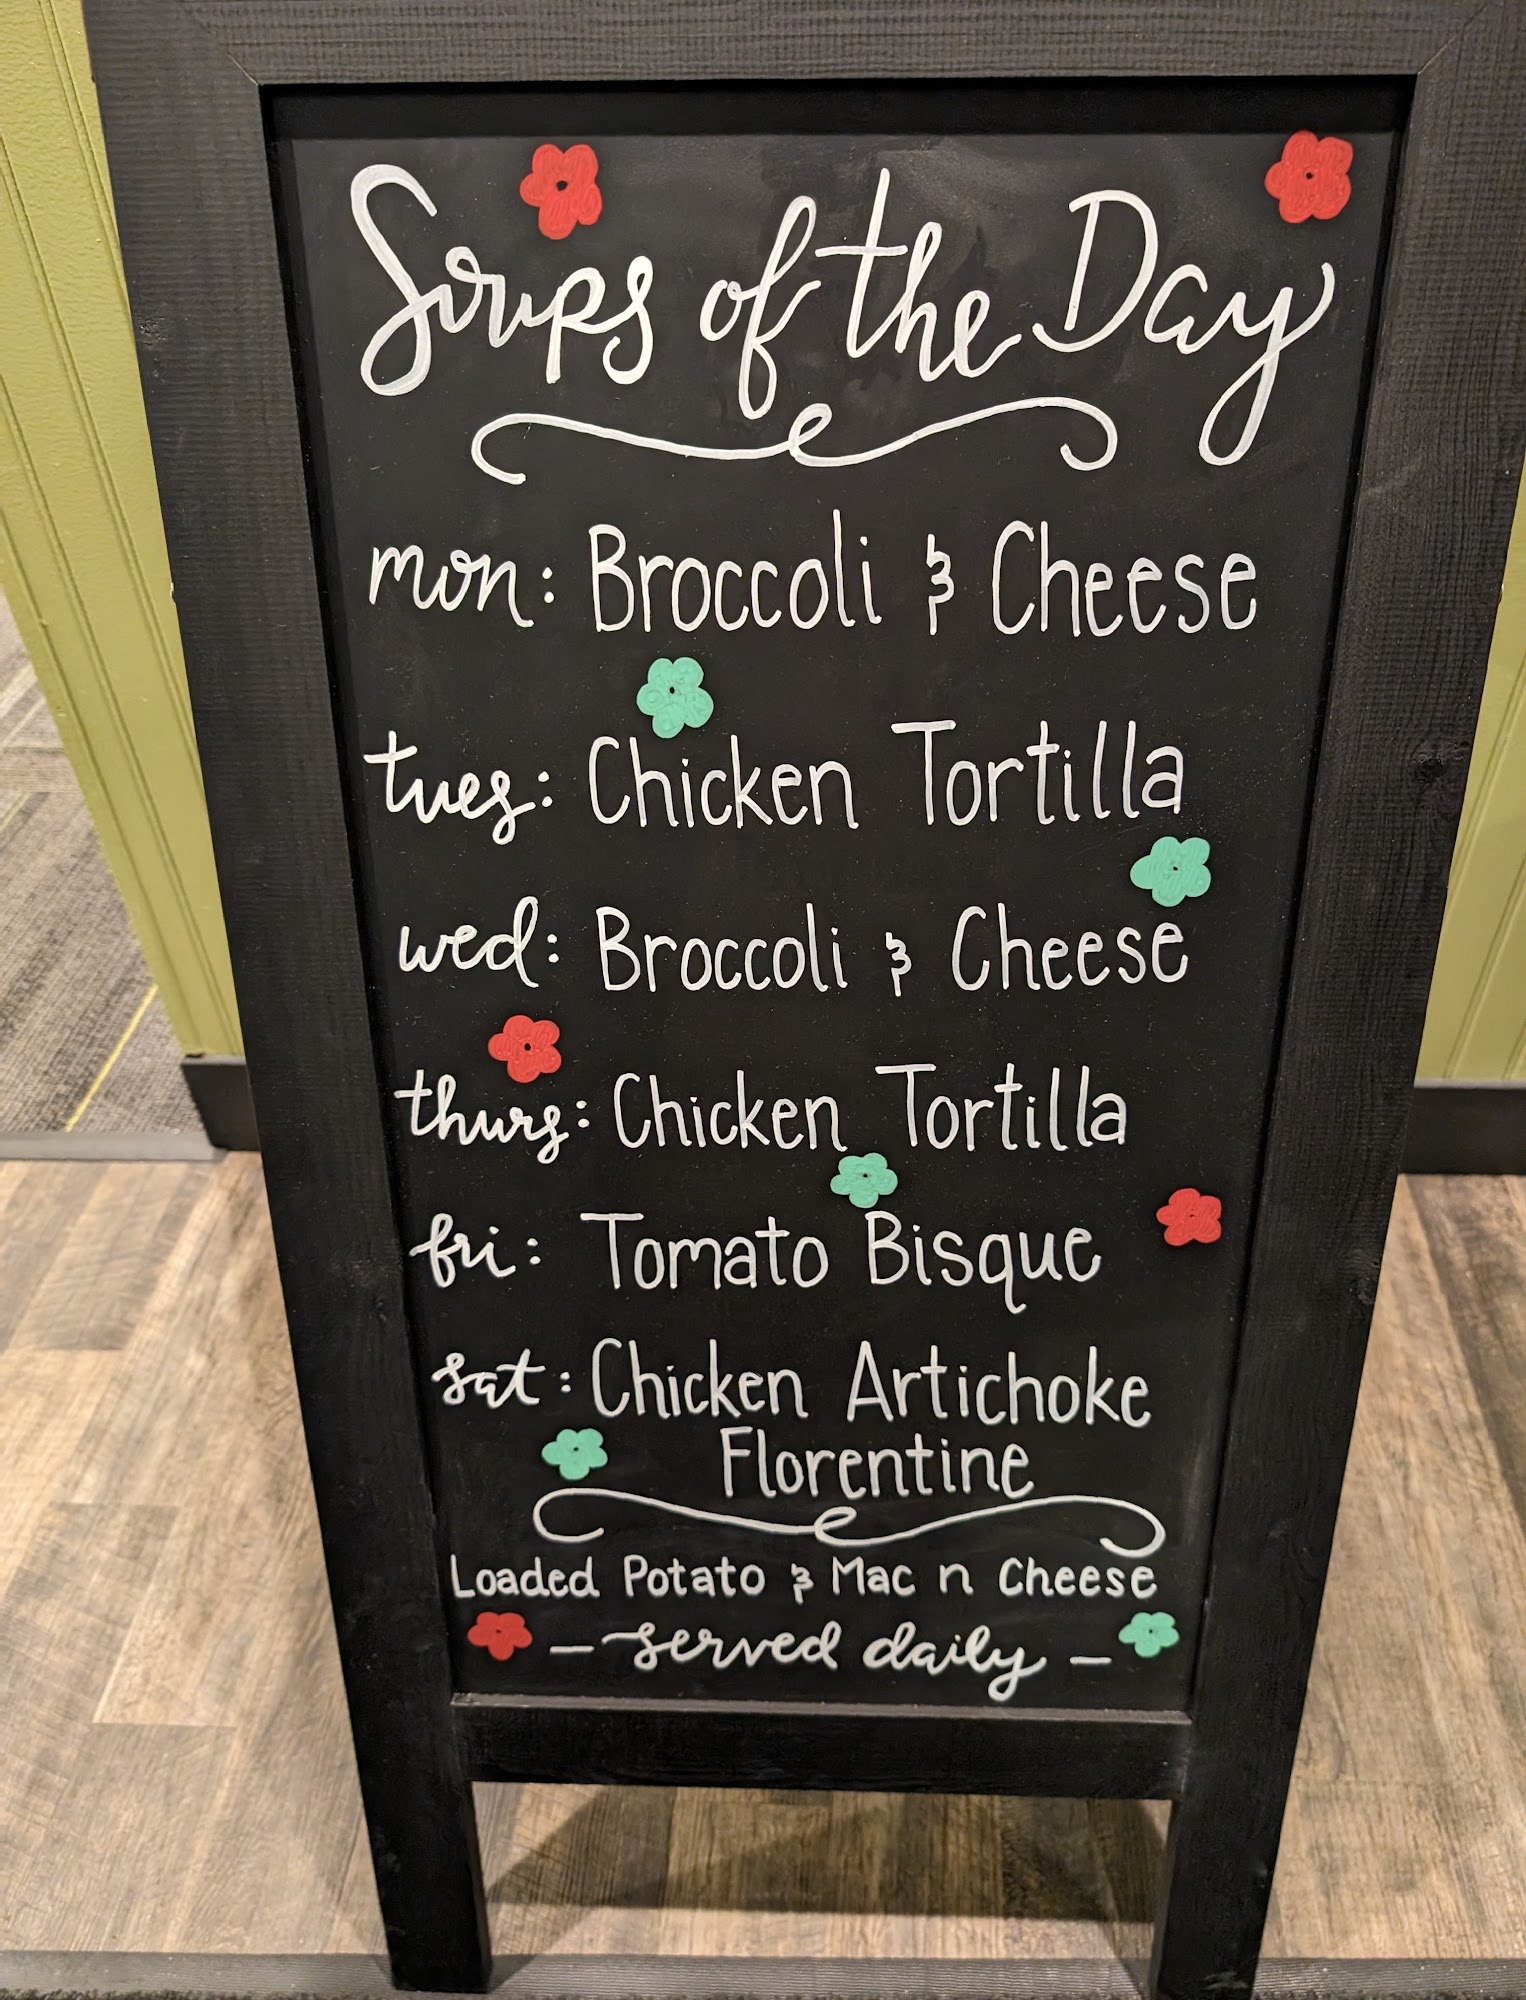 Soups of the Day
mon: Broccoli & Cheese
tues: Chicken Tortilla
wed: Broccoli & Cheese
thurs: Chicken Tortilla
fri: Tomato Bisque
sat: Chicken Artichoke
Florentine
Loaded Potato & Mac n Cheese
- served daily -